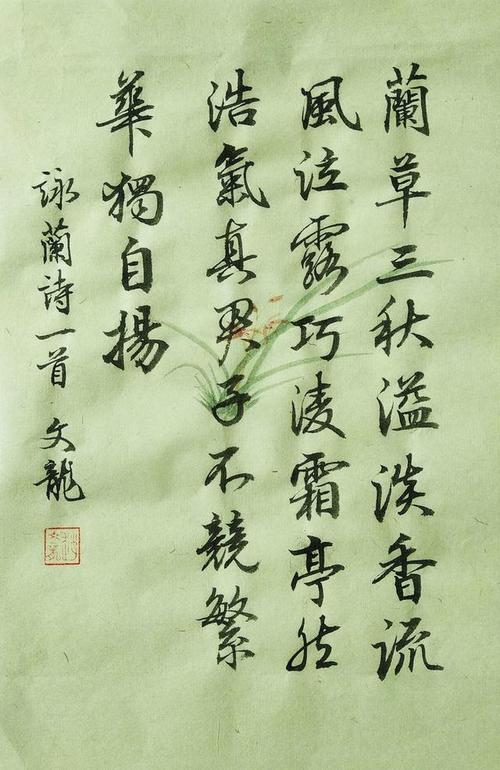 蘭草三秋溢淡香流
風泣露巧淩霜亭然
浩氣真男子不競繁
華獨自揚
詠蘭詩一首 文龍